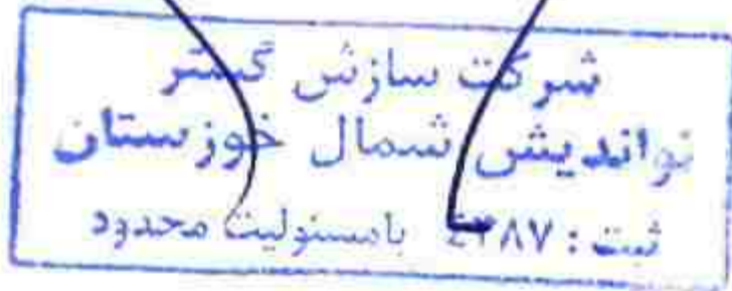 شرکت سازش گستر
نواندیش شمال خوزستان
ثبت : ۴۳۸۷ بامسئولیت محدود